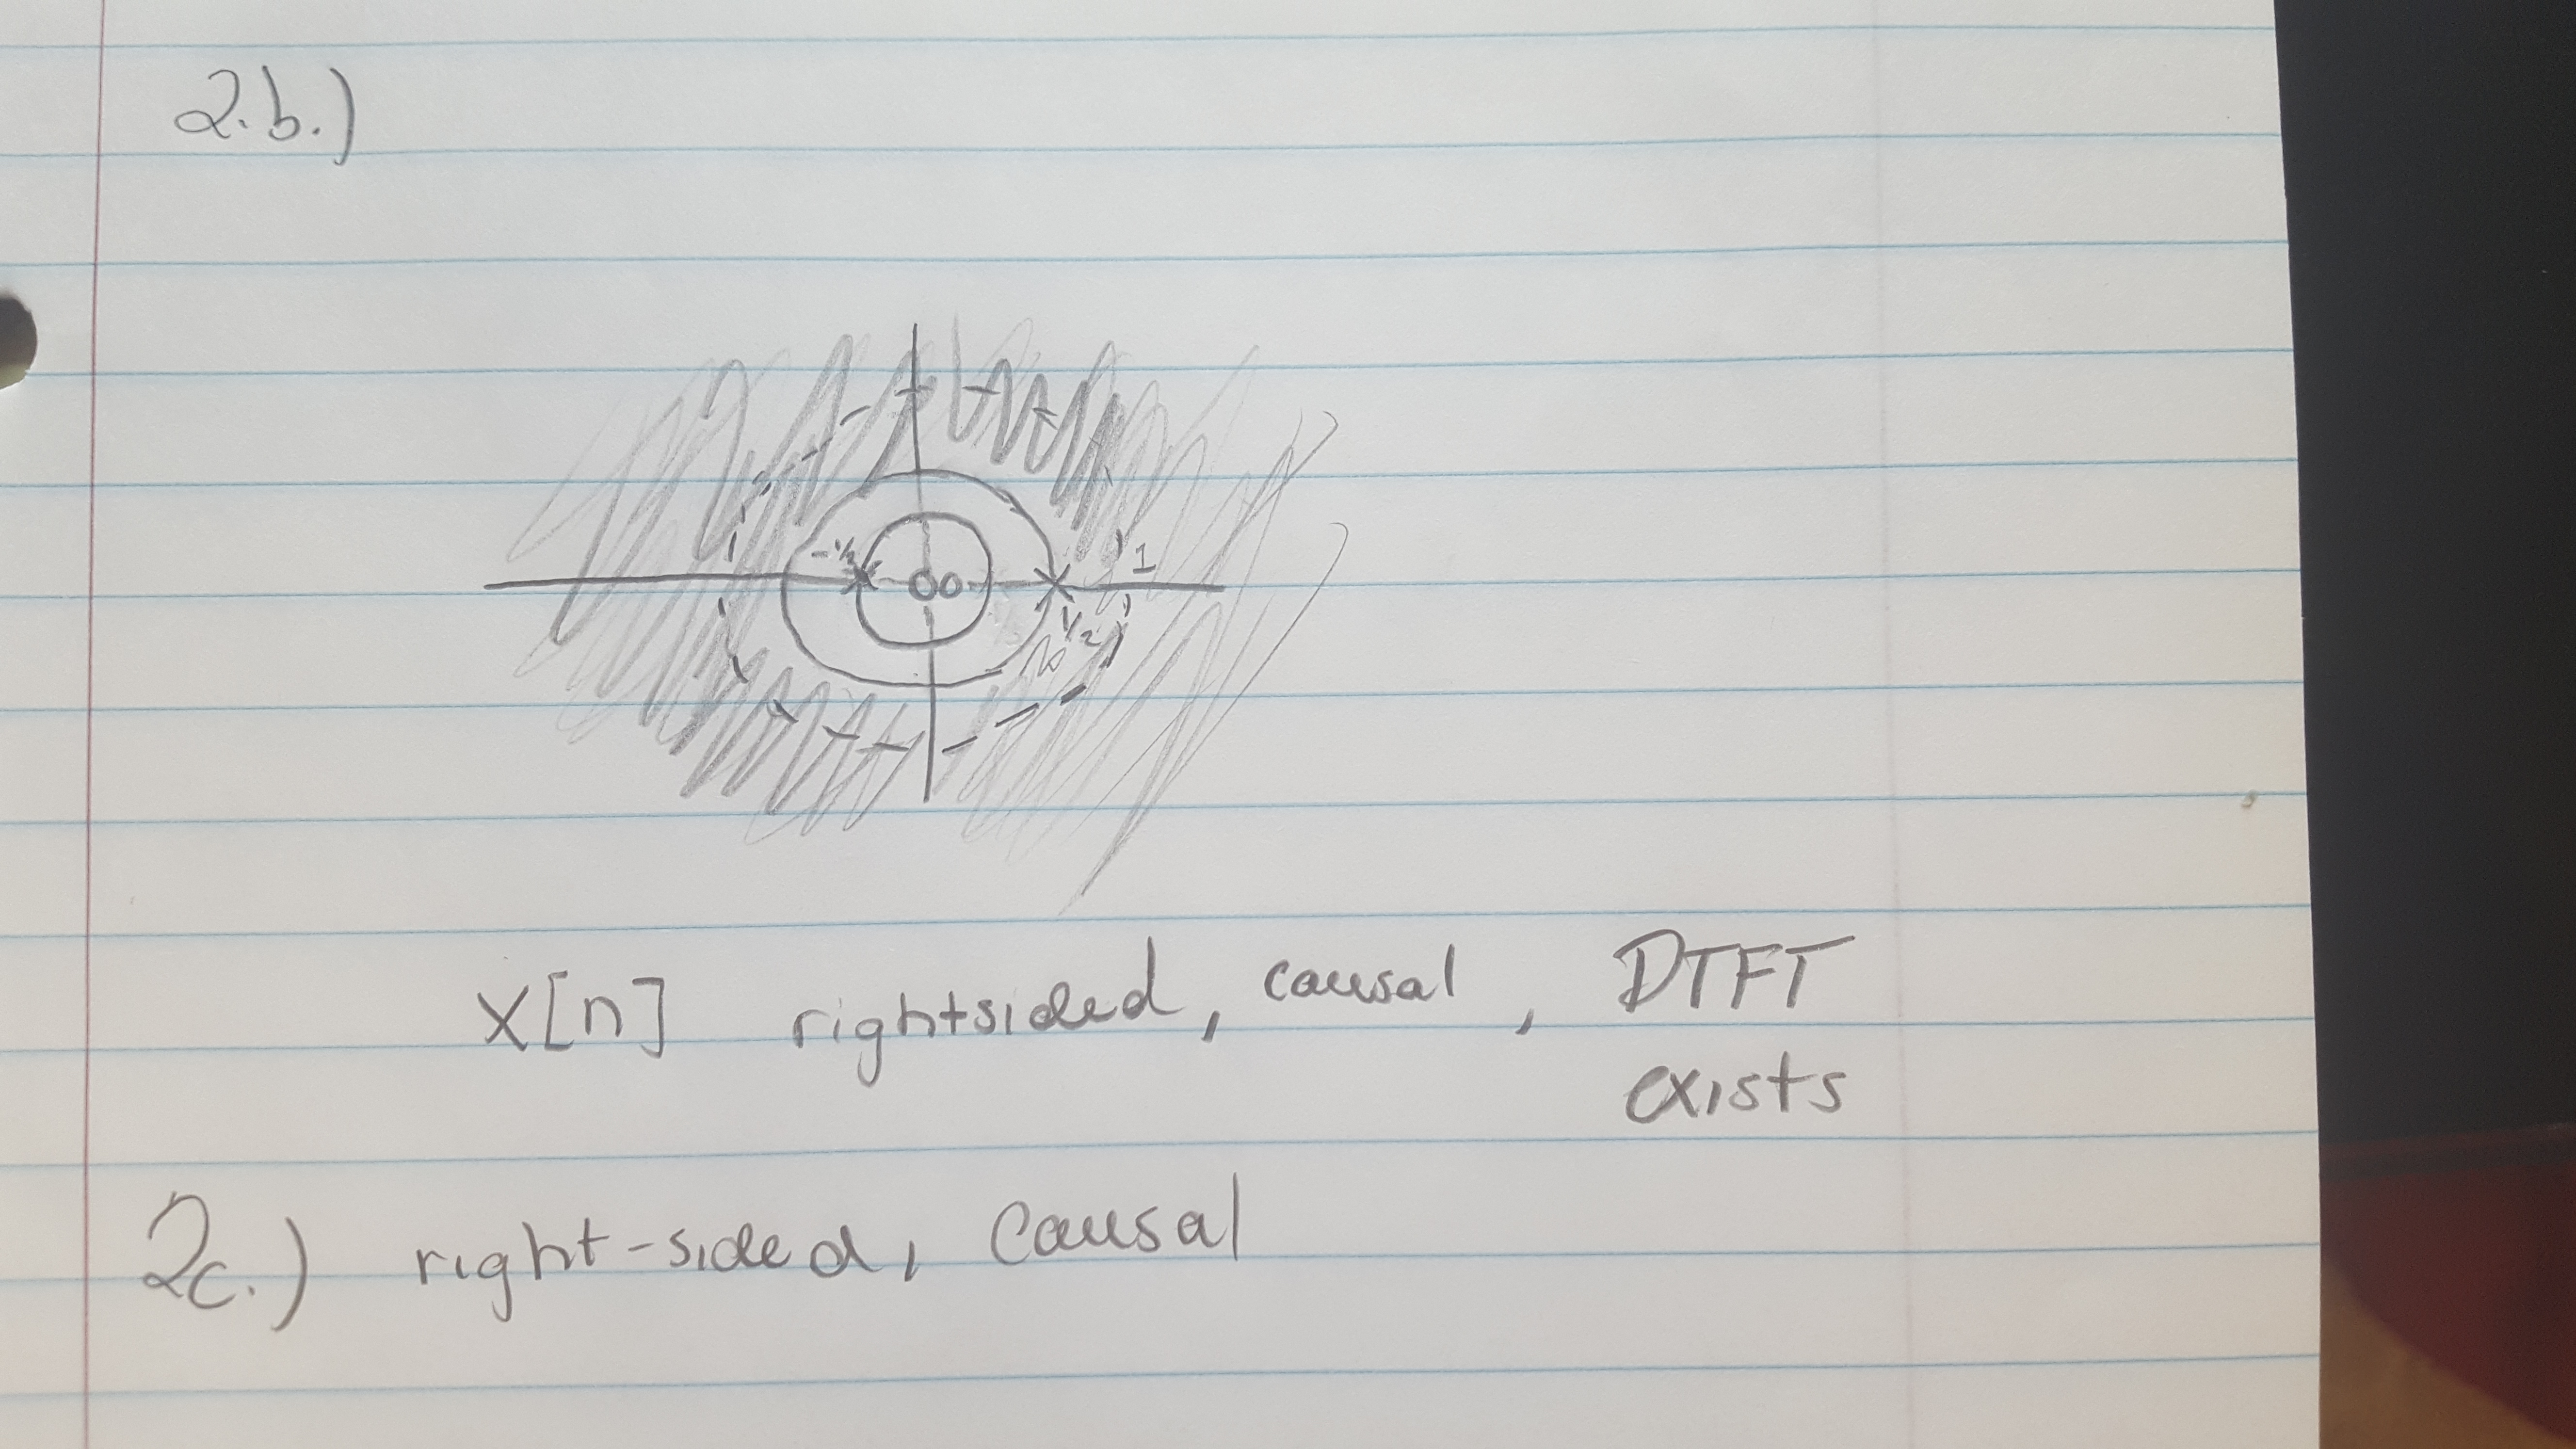 2.b.)
-1/2
00
1/2
1
X[n] rightsided, causal, DTFT
exists
2c.) right-sided, causal